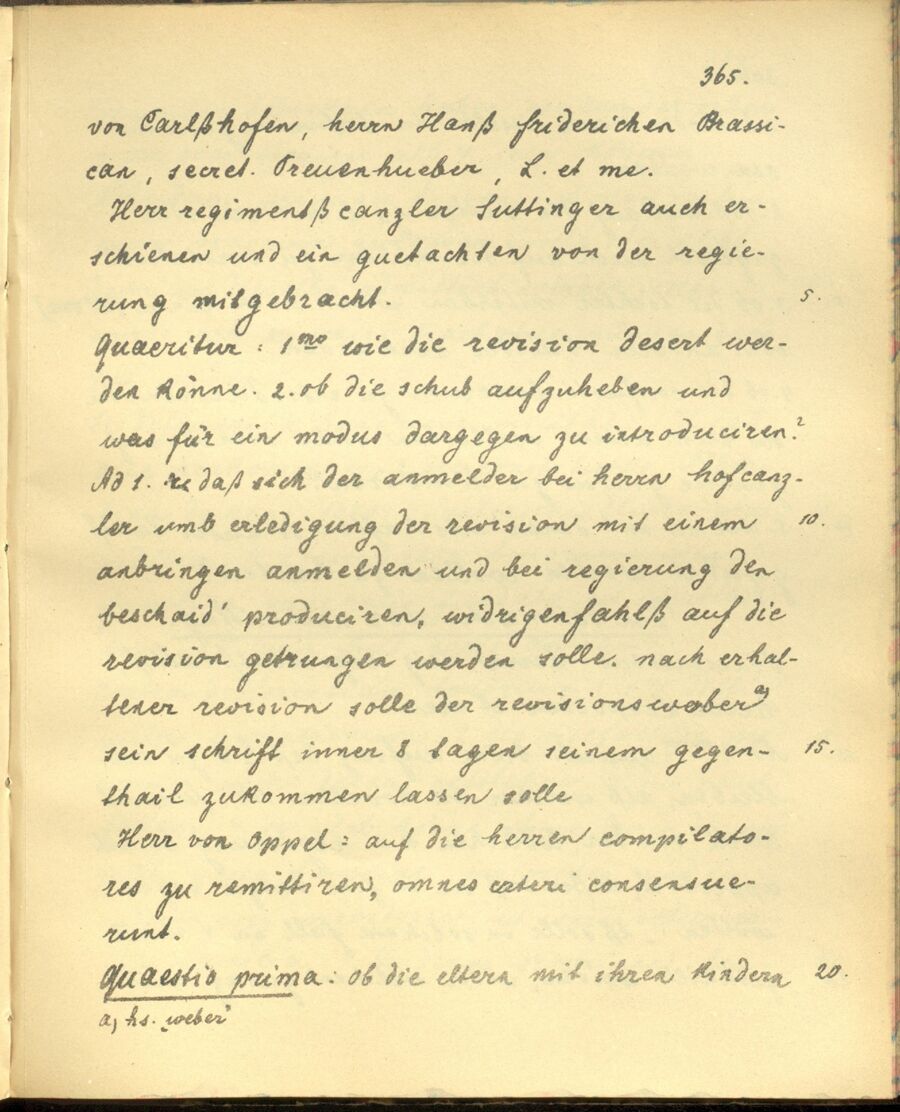 365.
von Carlßhofen, herrn Hanß friderichen Brassi-
can, secret. Preuenhueber, L. et me.
Herr regimentßcanzler Suttinger auch er-
schienen und ein guetachten von der regie-
rung mitgebracht. 5.
Quaeritur: 1mo wie die revision desert wer-
den könne. 2. ob die schub aufzuheben und
was für ein modus dargegen zu introduciren?
Ad 1. daß sich der anmelder bei herrn hofcanz-
ler umb erledigung der revision mit einem 10.
anbringen anmelden und bei regierung den
beschaid' produciren, widrigenfahlß auf die
revision getrungen werden solle. nach erhal-
tener revision solle der revisionswerber a)
sein schrift inner 8 tagen seinem gegen- 15.
thail zukommen lassen solle
Herr von Oppel: auf die herren compilato-
res zu remittiren, omnes caeteri consensue-
runt.
Quaestio prima: ob die eltern mit ihren kindern 20.
a) hs. „weber"